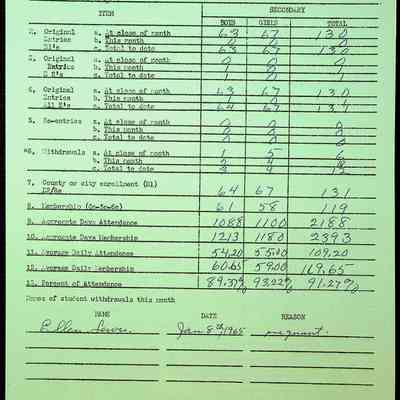 ITEM SECONDARY
BOYS GIRLS TOTAL
2. Original a. At close of month 63 67 130
Entries b. This month 0 0 0
E1's c. Total to date 63 67 130
3. Original a. At close of month 0 0 0
Entries b. This month
E2's c. Total to date 1 0 1
4. Original a. At close of month 63 67 130
Entries b. This month 1 0
All E's c. Total to date 64 67 131
5. Re-entries a. At close of month 0 0 0
b. This month 0 0 0
c. Total to date 0 0 0
*6. Withdrawals a. At close of month 1 5 6
b. This month
c. Total to date 3 9 12
7. County or city enrollment (E1) 64 67 131
8. Membership 61 58 119
9. Aggregate Days Attendance 1088 1100 2188
10. Aggregate Days Membership 1213 1180 2393
11. Average Daily Attendance 54.20 55.00 109.20
12. Average Daily Membership 60.65 59.00 119.65
13. Percent of Attendance 89.37% 93.22% 91.27%
Names of student withdrawals this month
NAME DATE REASON
Ellen Jan 8th, 1965 pregnant.